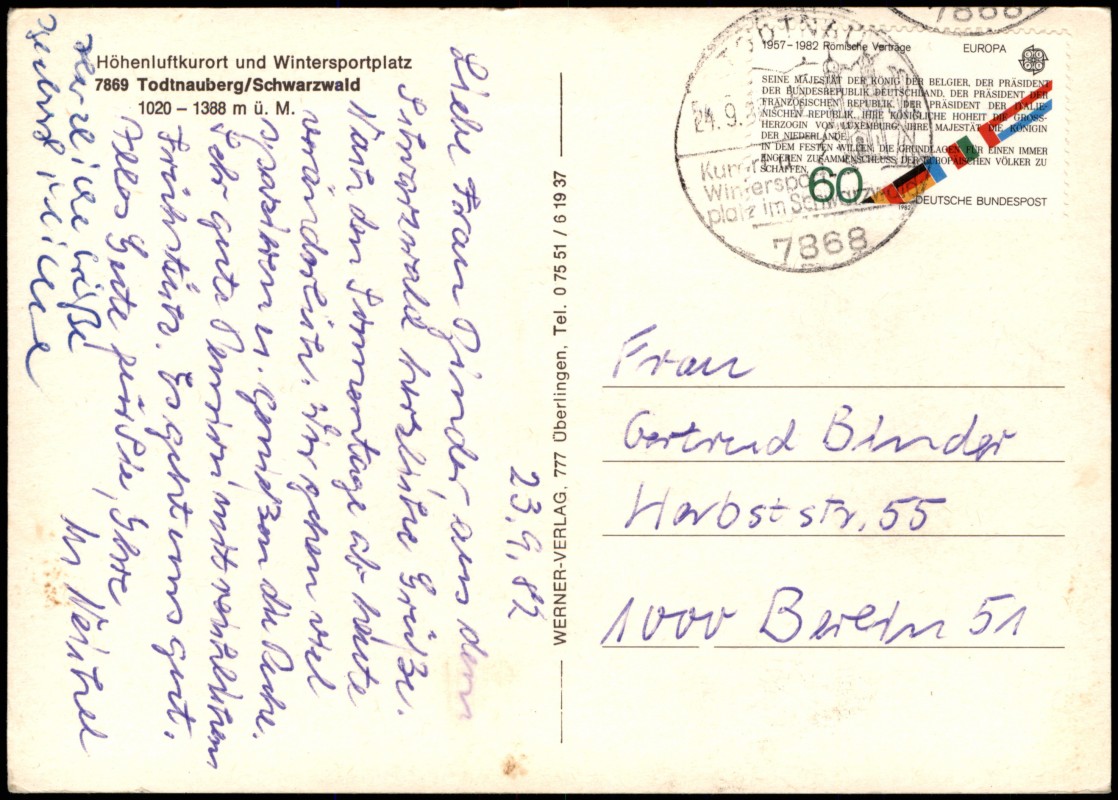 Höhenluftkurort und Wintersportplatz
7869 Todtnauberg/Schwarzwald
1020 – 1388 m ü. M.
23.9.82
Liebe Frau Binder, aus dem
Schwarzwald herzliche Grüße.
Nach den Sonnentagen ab heute
veränderlich. Wir gehen viel
spazieren u. genießen die Ruhe.
Sehr gute Pension mit reichlichem
Frühstück. Es geht uns gut.
Alles Gute für Sie, Ihre
Herzliche Grüße
WERNER-VERLAG, 777 Überlingen, Tel. 0 75 51 / 6 19 37
7868
TODTNAU
24.9.
Kurort u.
Winterspo
platz im Schwarzwald
7868
1957–1982 Römische Verträge
EUROPA
SEINE MAJESTÄT DER KÖNIG DER BELGIER, DER PRÄSIDENT
DER BUNDESREPUBLIK DEUTSCHLAND, DER PRÄSIDENT DER
FRANZÖSISCHEN REPUBLIK, DER PRÄSIDENT DER ITALIE-
NISCHEN REPUBLIK, IHRE KÖNIGLICHE HOHEIT DIE GROSS-
HERZOGIN VON LUXEMBURG, IHRE MAJESTÄT DIE KÖNIGIN
DER NIEDERLANDE
IN DEM FESTEN WILLEN, DIE GRUNDLAGEN FÜR EINEN IMMER
ENGEREN ZUSAMMENSCHLUSS DER EUROPÄISCHEN VÖLKER ZU
SCHAFFEN,
60
1982
DEUTSCHE BUNDESPOST
Frau
Gertrud Binder
Herbststr. 55
1000 Berlin 51